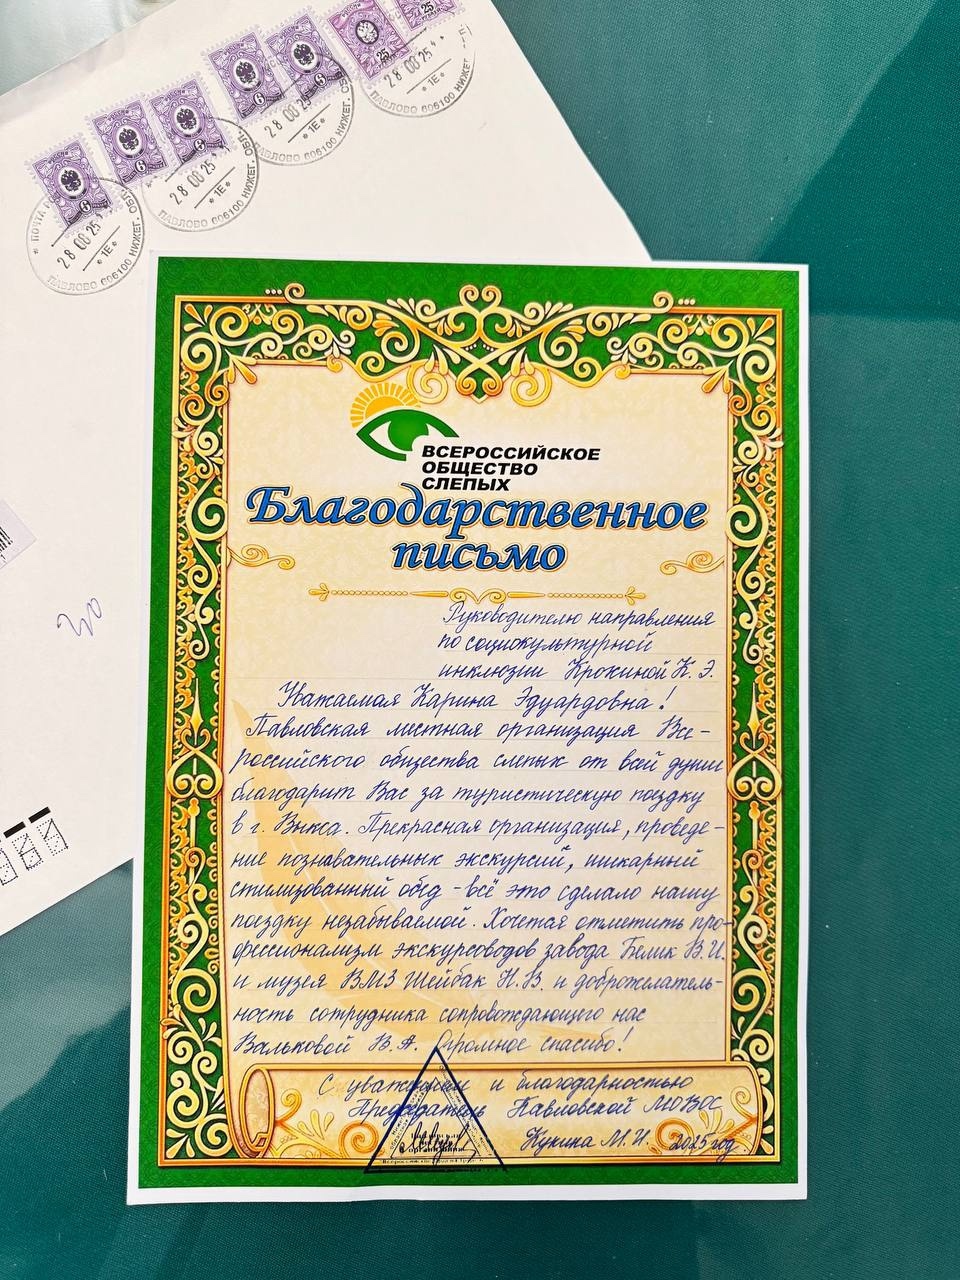 28 08 25
1Е
ПАВЛОВО 606100 НИЖЕГ. ОБЛ.
28 08 25
1Е
ПАВЛОВО 606100 НИЖЕГ. ОБЛ.
28 08 25
1Е
ПАВЛОВО 606100 НИЖЕГ. ОБЛ.
28 08 25
1Е
ПАВЛОВО 606100 НИЖЕГ.
ВСЕРОССИЙСКОЕ
ОБЩЕСТВО
СЛЕПЫХ
Благодарственное
письмо
Руководителю направления
по социокультурной
инклюзии Крокиной К. Э.
Уважаемая Карина Эдуардовна!
Павловская местная организация Все-
российского общества слепых от всей души
благодарит Вас за туристическую поездку
в г. Выкса. Прекрасная организация, проведе-
ние познавательных экскурсий, шикарный
стилизованный обед - всё это сделало нашу
поездку незабываемой. Хочется отметить про-
фессионализм экскурсоводов завода Белик В.И.
и музея ВМЗ Шейбак Н.В. и доброжелатель-
ность сотрудника сопровождающего нас
Вальковой В.А. Огромное спасибо!
С уважением и благодарностью
Председатель Павловской МО ВОС
Кукина М.И. 2025 год.